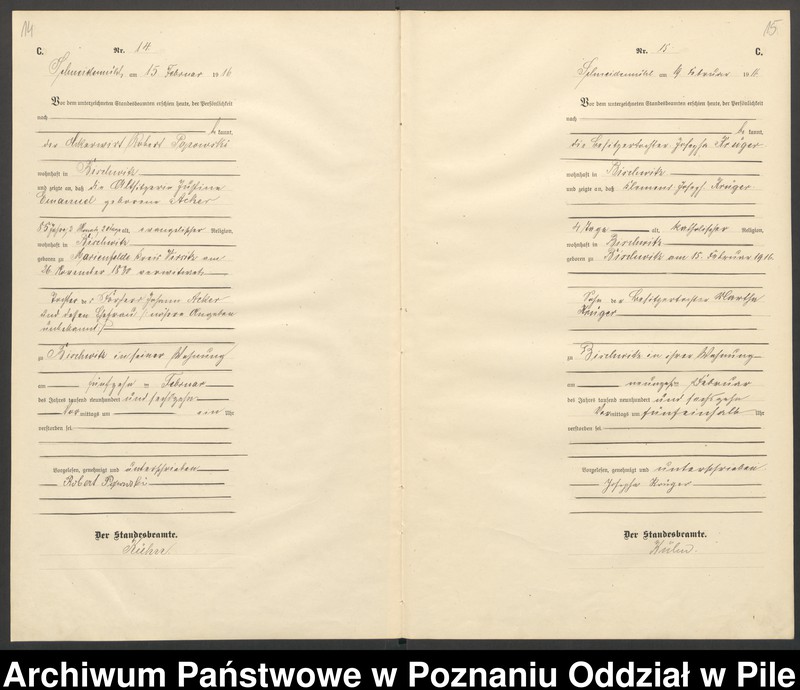 14
C. Nr. 14
Schneidemühl, am 15 Februar 1916
Vor dem unterzeichneten Standesbeamten erschien heute, der Persönlichkeit
nach
be kannt,
der Ackerwirt Robert
wohnhaft in
und zeigte an, daß die Altsitzerin Justine
Emanuel geborene Acker
85 Jahre, 2 alt, evangelischer Religion,
wohnhaft in
geboren zu Marienfelde Kreis Wirsitz am
26 November 1830 verwitwet
Tochter des Johann Acker
und dessen Ehefrau / nähere Angaben
unbekannt /
zu in seiner Wohnung
am fünfzehn Februar
des Jahres tausend neunhundert und sechzehn
Vor mittags um ein Uhr
verstorben sei.
Vorgelesen, genehmigt und unterschrieben
Robert
Der Standesbeamte.
15
Nr. 15 C.
Schneidemühl am 19 Februar 1916.
Vor dem unterzeichneten Standesbeamten erschien heute, der Persönlichkeit
nach
be kannt,
die Besitzertochter Josepha Krüger
wohnhaft in
und zeigte an, daß Klemens Joseph Krüger
4 Tage alt, katholischer Religion,
wohnhaft in
geboren zu am 15. Februar 1916
Sohn der Besitzertochter Martha
Krüger
zu in ihrer Wohnung
am neunzehn Februar
des Jahres tausend neunhundert und sechzehn
Vor mittags um fünfeinhalb Uhr
verstorben sei.
Vorgelesen, genehmigt und unterschrieben
Josepha Krüger
Der Standesbeamte.
Archiwum Państwowe w Poznaniu Oddział w Pile